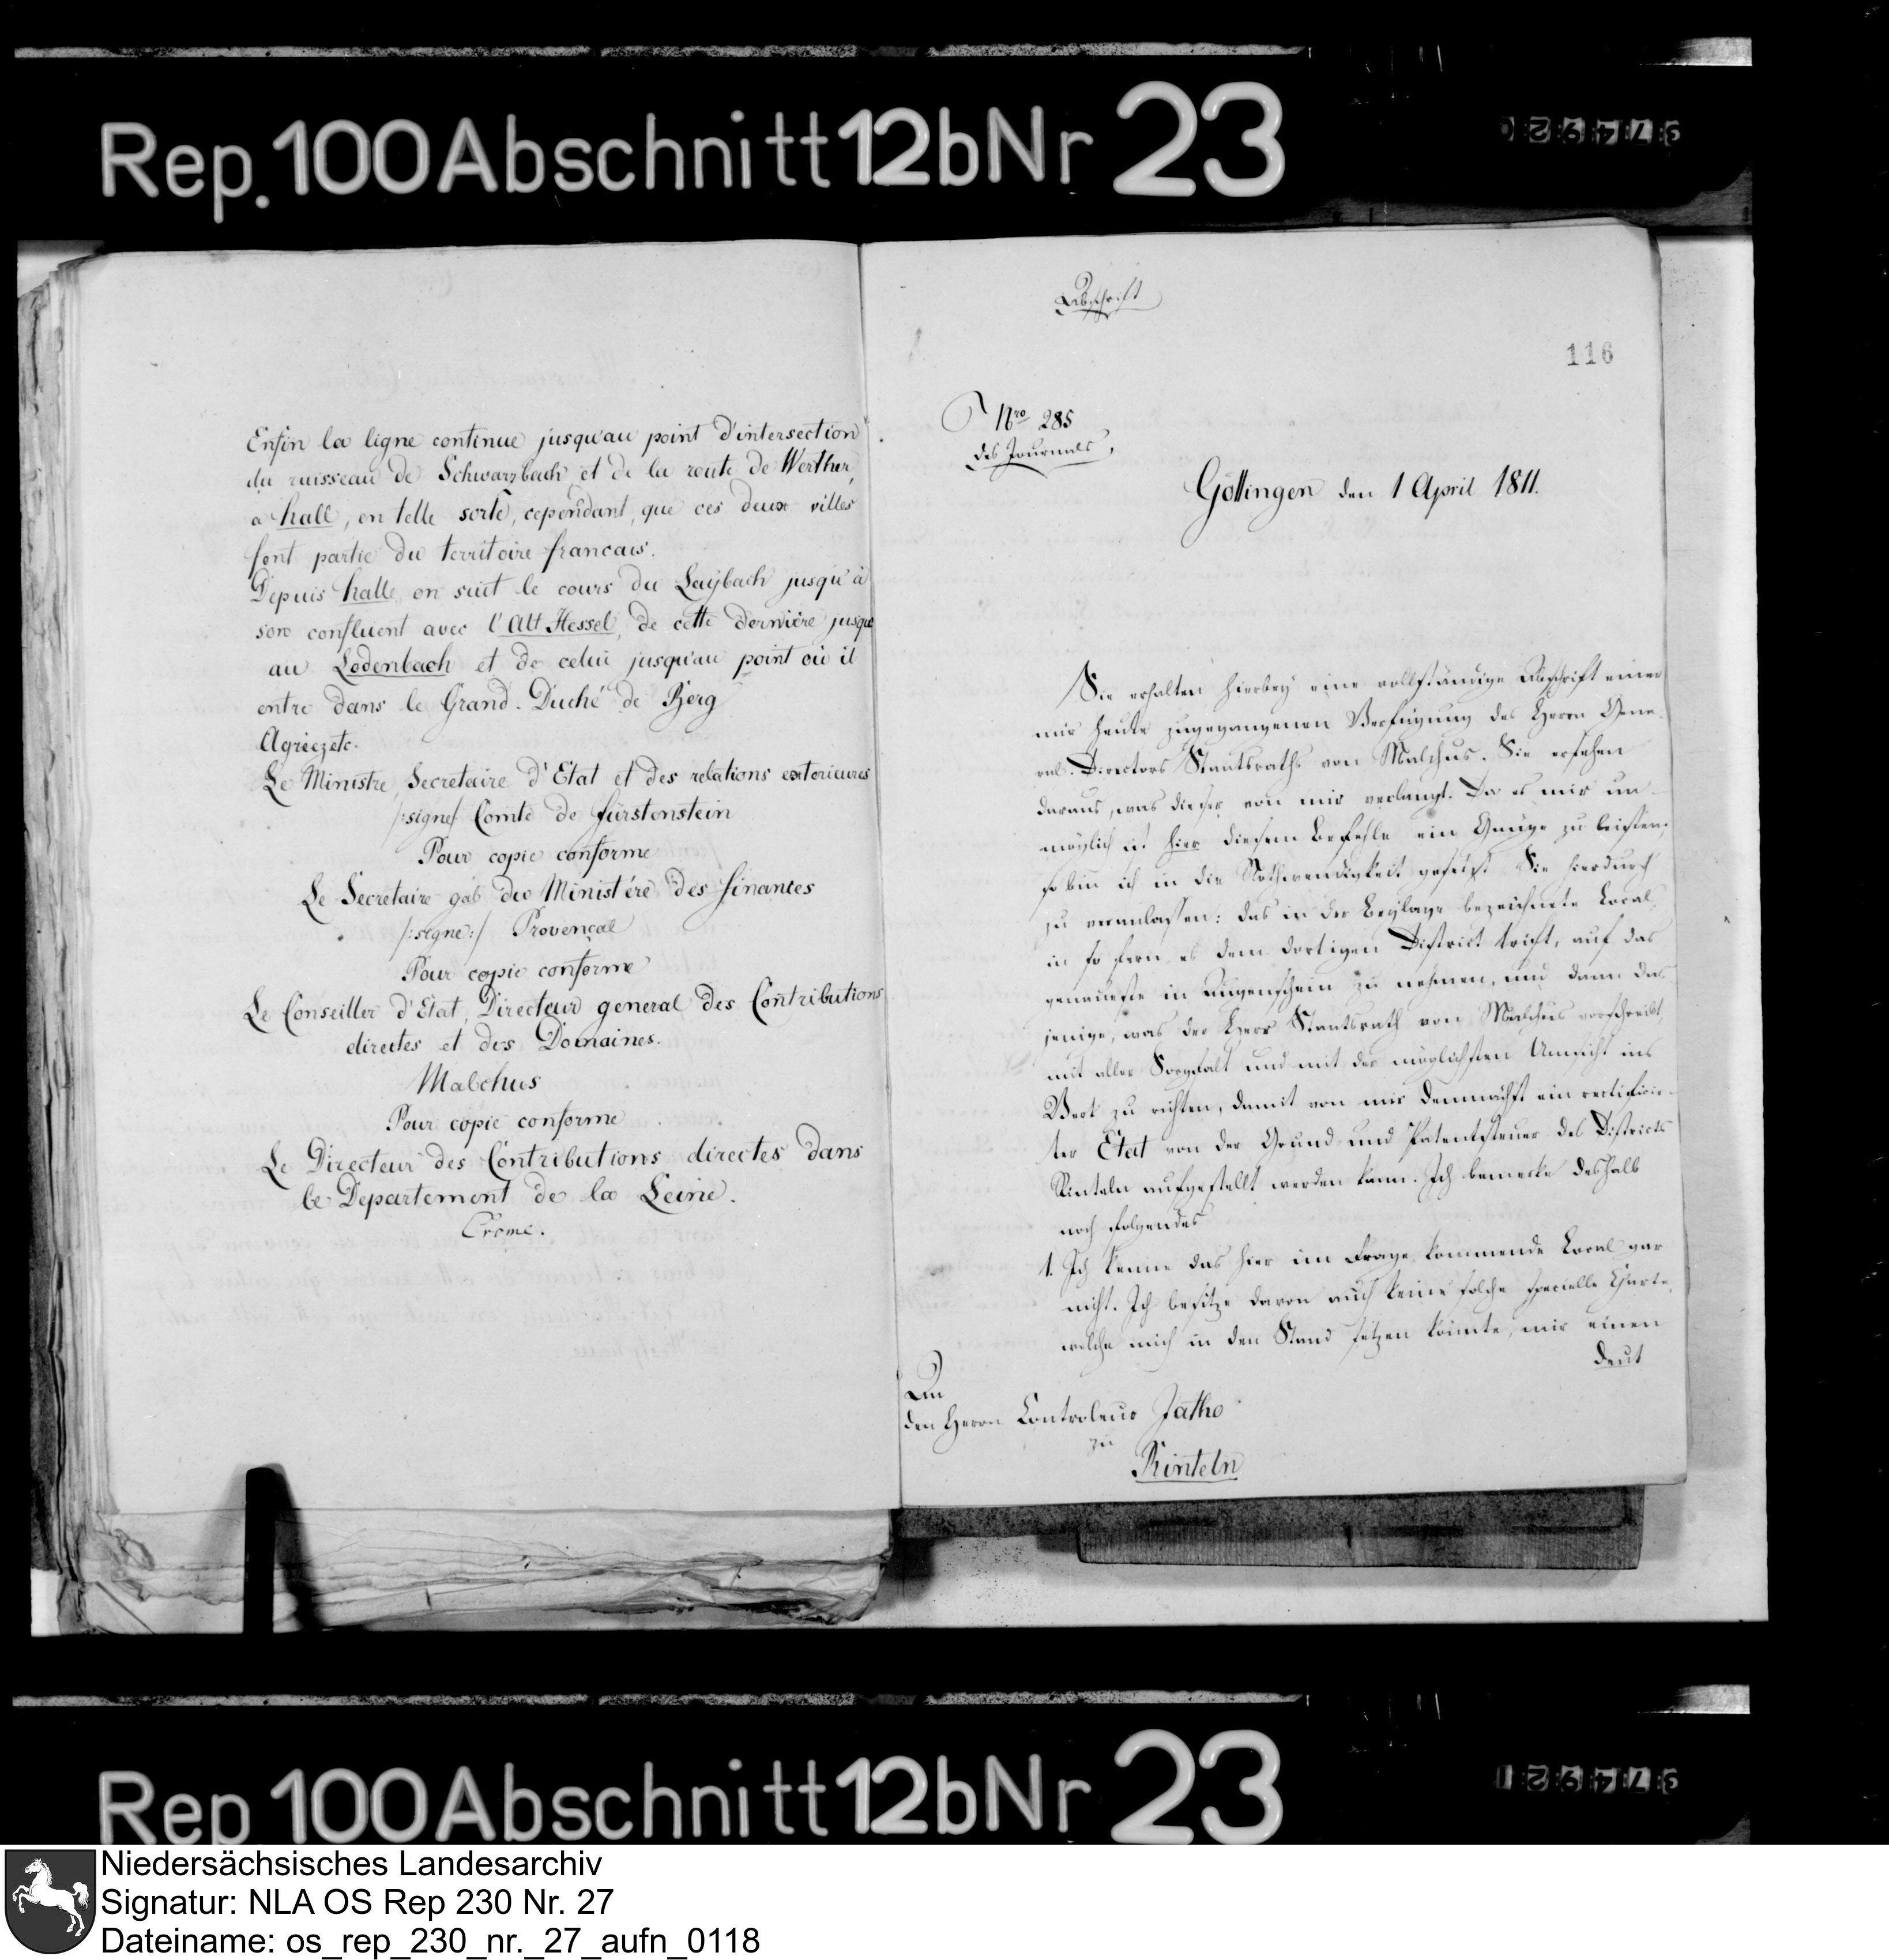 Rep. 100 Abschnitt 12b Nr 23
Enfin la ligne continue jusqu'au point d'intersection
du ruisseau de Schwarzbach et de la route de Werther,
a hall, en telle sorte, cependant, que ces deux villes
font partie du territoire francais.
Depuis halle on suit le cours du Laijbach jusqu'à
son confluent avec l'Alt Hessel, de cette dernière jusque
au Lodenbach et de celui jusqu'au point où il
entre dans le Grand-Duché de Berg
Agréez etc.
Le Ministre Secretaire d'Etat et des relations exterieures
/:signé/ Comte de fürstenstein
Pour copie conforme
Le Secretaire gāl du Ministère des finances
/:signe:/ Provençal
Pour copie conforme
Le Conseiller d'Etat, Directeur general des Contributions
directes et des Domaines.
Malchus
Pour copie conforme
Le Directeur des Contributions directes dans
le Departement de la Leine.
Crome.
Abschrift
116
Nro 285
des Journals,
Göttingen den 1 April 1811.
Sie erhalten hierbey eine vollständige Abschrift einer
mir heute zugegangenen Verfügung des Herrn Gene-
ral-Directors Staatsraths von Malchus. Sie ersehen
daraus, was dieser von mir verlangt. Da es mir un-
möglich ist hier diesem Befehle ein Genüge zu leisten;
so bin ich in die Nothwendigkeit gesetzt Sie hierdurch
zu veranlassen: das in der Beylage bezeichnete Local,
in so fern es dem dortigen District trift, auf das
genaueste in Augenschein zu nehmen, und dann das
jenige, was der Herr Staatsrath von Malchus vorschreibt,
mit aller Sorgfalt und mit der möglichsten Umsicht ins
Werk zu richten, damit von mir demnächst ein rectificir-
ter Etat von der Grund und Patentsteuer des Districts
Rinteln aufgestellt werden kann. Ich bemerke deshalb
noch folgendes
1. Ich kenne das hier im Frage kommende Local gar
nicht. Ich besitze davon auch keine solche specielle Charte,
welche mich in den Stand setzen könnte, mir einen
deut
An
den Herrn Controleur Jatho
zu
Rinteln
Rep 100 Abschnitt 12b Nr 23
Niedersächsisches Landesarchiv
Signatur: NLA OS Rep 230 Nr. 27
Dateiname: os_rep_230_nr._27_aufn_0118